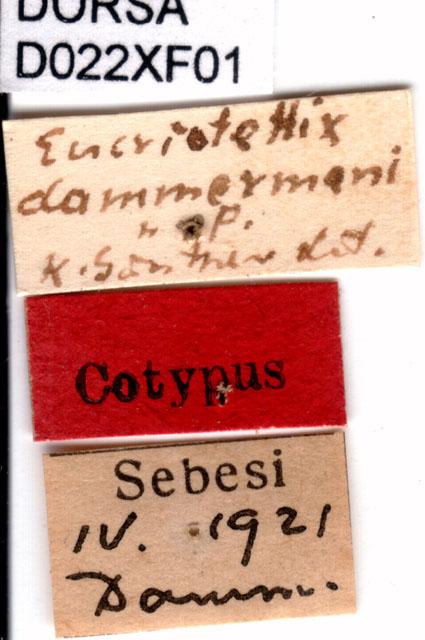 DORSA
D022XF01
Eucriotettix
dammermani
n. sp.
K. Günther det.
Cotypus
Sebesi
IV. 1921
Damm.